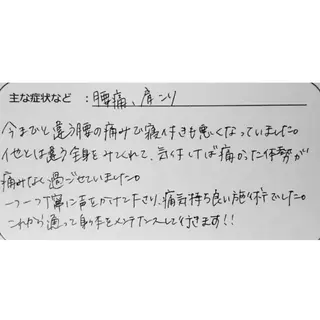 主な症状など :腰痛、肩こり
今までと違う腰の痛みで寝付きも悪くなっていました。
他とは違う全身をみてくれて、気付けば痛かった体勢が
痛みなく過ごせていました。
一つ一つ丁寧に声をかけて下さり、痛気持ち良い施術でした。
これから通って身体をメンテナンスして行きます!!